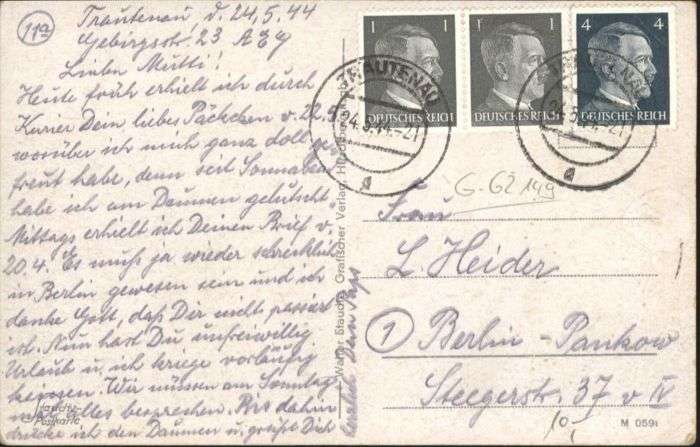 11a
Trautenau, d. 24.5.44
Gebirgsstr. 23 AEG
Lieber Mutti!
Heute früh erhielt ich durch
Kurier Dein liebes Päckchen v. 22.5.
worüber ich mich ganz doll ge-
freut habe, denn seit Sonnabend
habe ich am Daumen gelutscht
Mittags erhielt ich Deinen Brief v.
20.4. Es muß ja wieder schrecklich
in Berlin gewesen sein und ich
danke Gott, daß Dir nicht passiert
ist. Nun hast Du unfreiwillig
Urlaub u. ich kriege vorläufig
keinen. Wir müssen am Sonntag
alles besprechen. Bis dahin
drücke ich den Daumen u. grüßt Dich
herzlich Dein
Postkarte
Walter Staudte, Grafischer Verlag
1 1
DEUTSCHES REICH
1 1
DEUTSCHES REICH
4 4
DEUTSCHES REICH
TRAUTENAU
24.5.44.-21
a
TRAUTENAU
24.5.44.-21
a
G-G2 149
Frau
L Heider
1 Berlin-Pankow
Steegerstr. 37 v IV
10-
M 0591